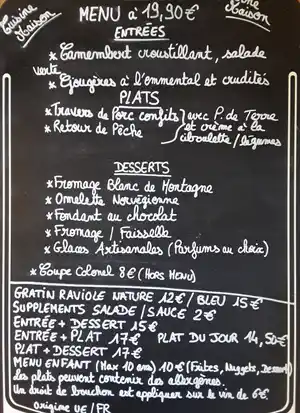 Cuisine Maison
MENU à 19,90€
Cuisine Maison
ENTRÉES
* Camembert croustillant, salade
verte
* Gougères à l'emmental et crudités
PLATS
* Travers de Porc confits } avec P. de Terre
* Retour de Pêche et crème à la
ciboulette / légumes
DESSERTS
* Fromage Blanc de Montagne
* Omelette Norvégienne
* Fondant au chocolat
* Fromage / Faisselle
* Glaces Artisanales (Parfums au choix)
* Coupe Colonel 8€ (HORS MENU)
GRATIN RAVIOLE NATURE 12€ / BLEU 15€
SUPPLEMENTS SALADE / SAUCE 2€
ENTRÉE + DESSERT 15€
ENTRÉE + PLAT 17€ PLAT DU JOUR 14,50€
PLAT + DESSERT 17€
MENU ENFANT (Max 10 ans) 10€ (Frites, Nuggets, Dessert)
Les plats peuvent contenir des allergènes.
Un droit de bouchon est appliquer sur le vin de 6€.
origine UE / FR